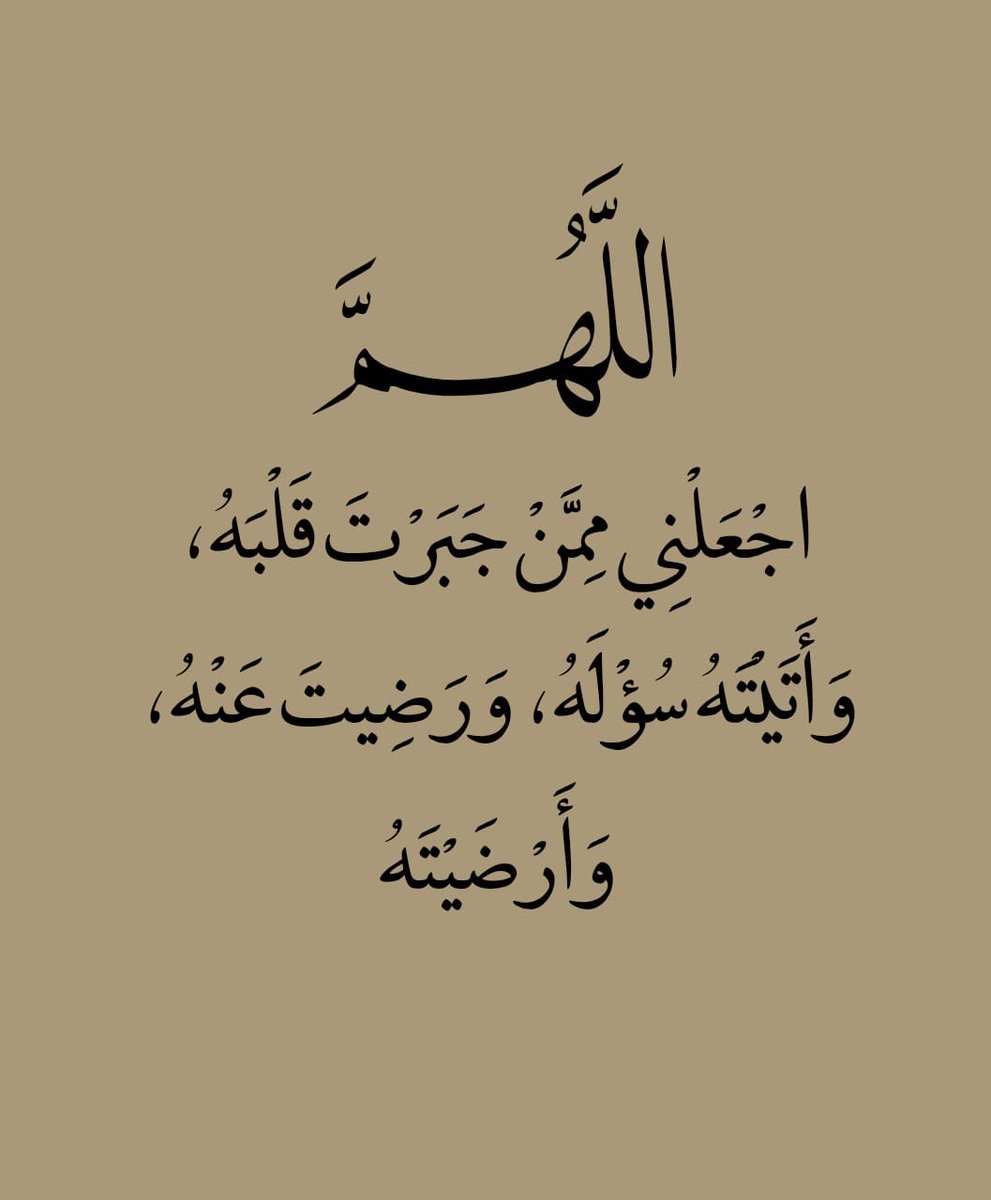 اللَّهُمَّ
اجْعَلْنِي مِمَّنْ جَبَرْتَ قَلْبَهُ،
وَأَتَيْتَهُ سُؤْلَهُ، وَرَضِيتَ عَنْهُ،
وَأَرْضَيْتَهُ